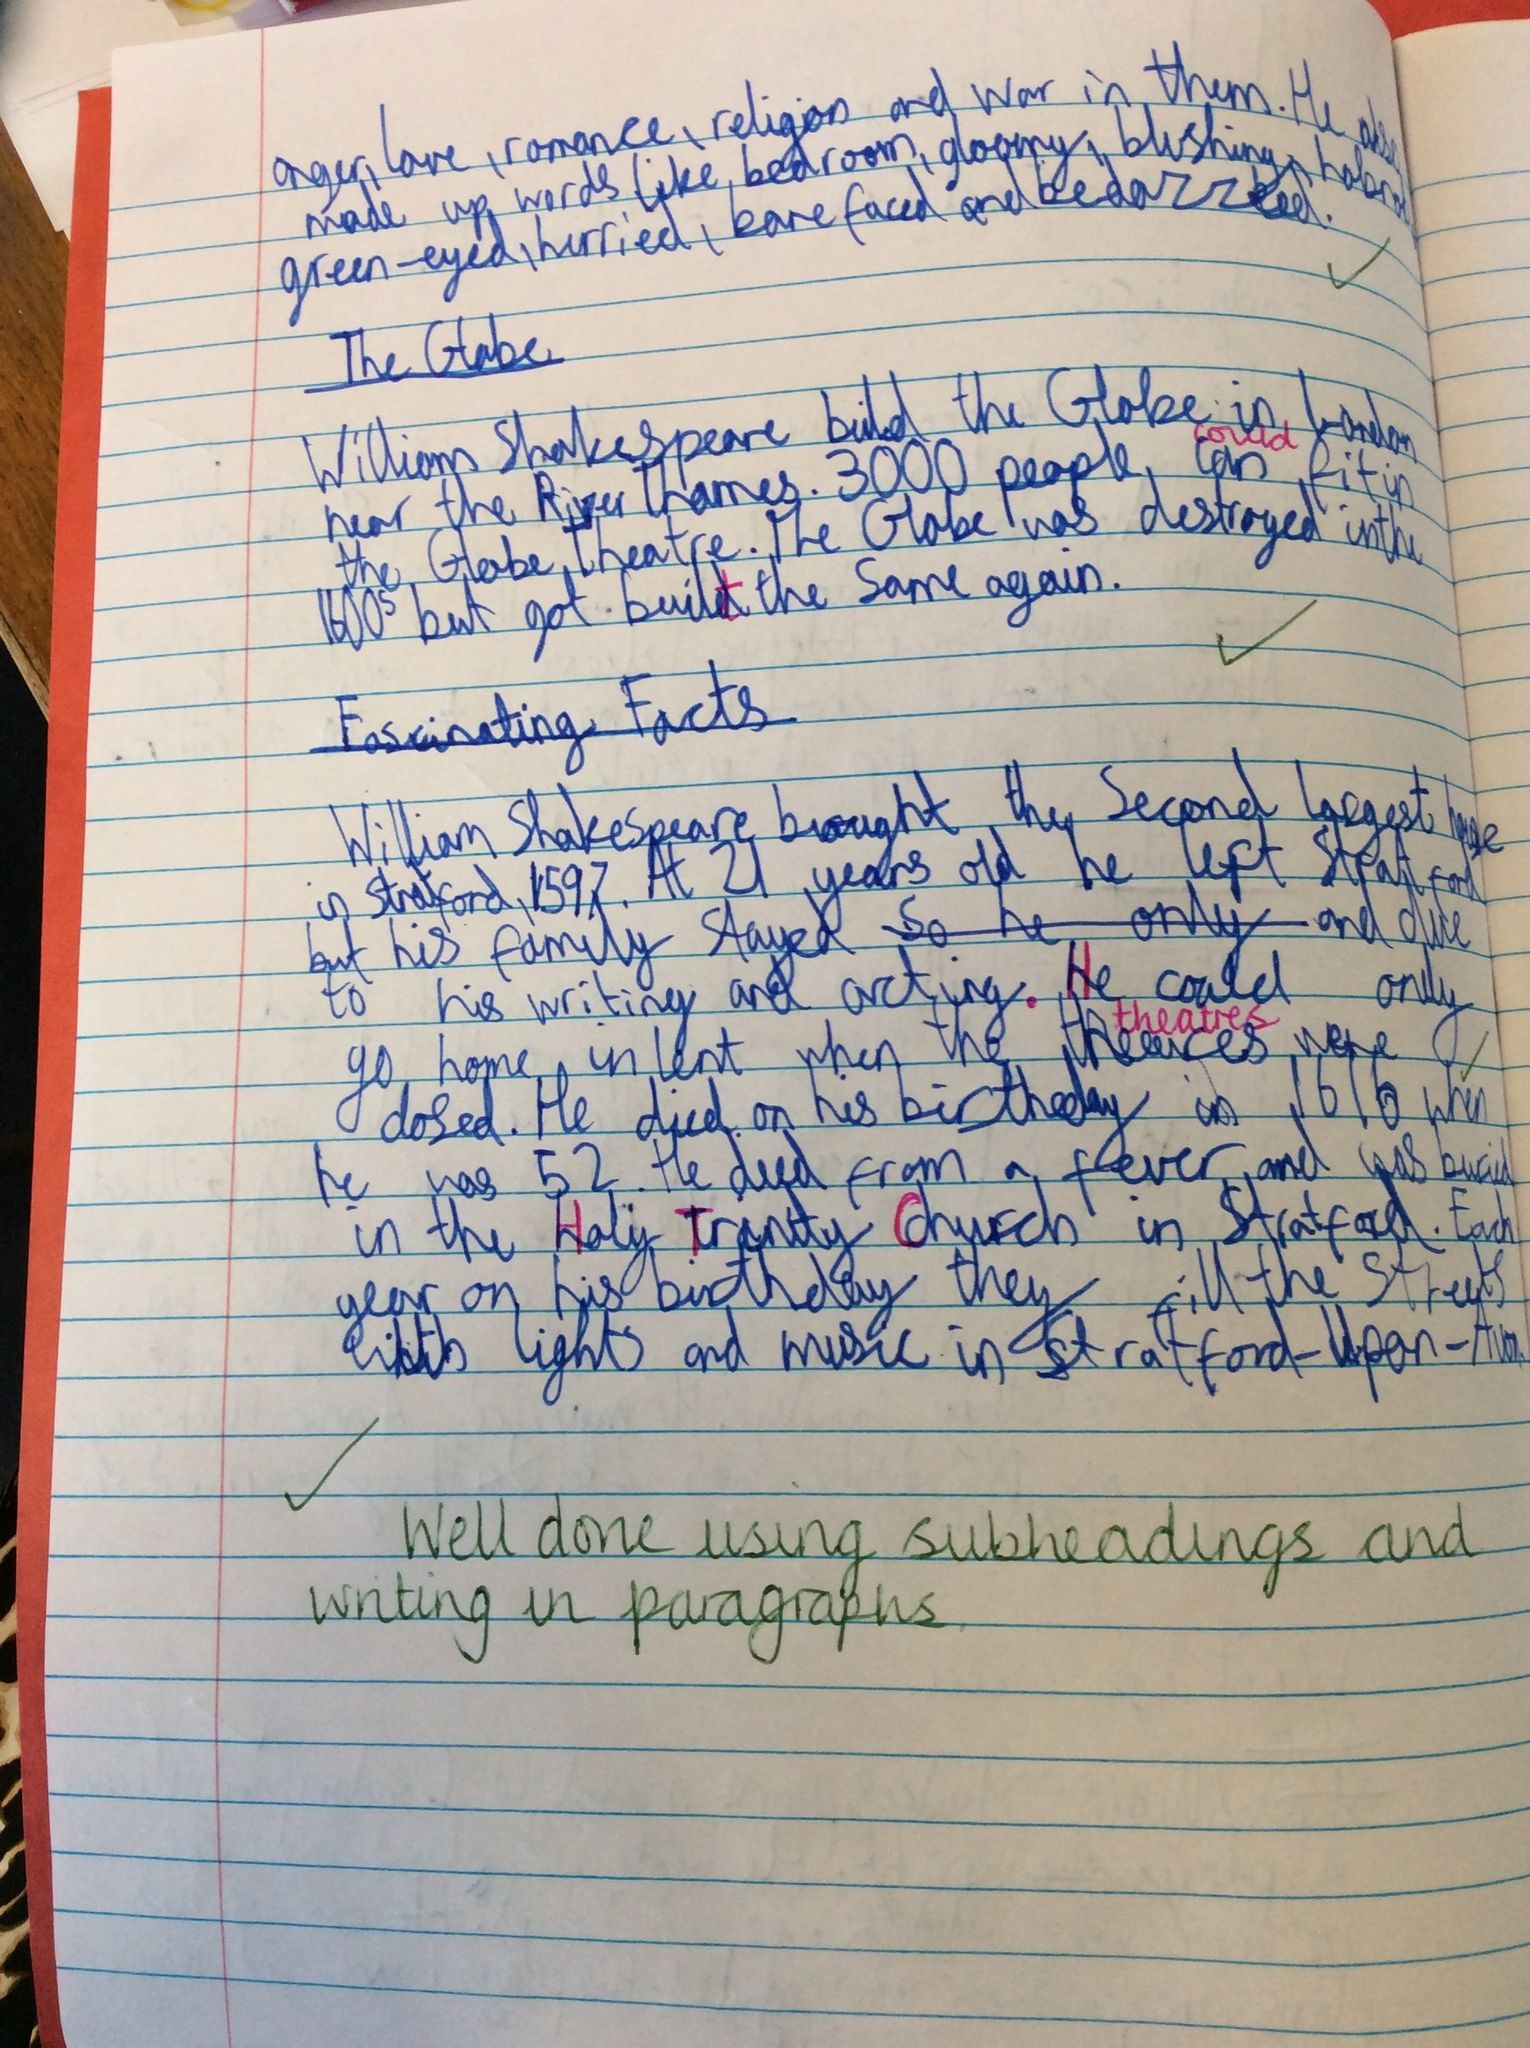 anger, love, romance, religion and war in them. He also
made up words like bedroom, gloomy, blushing,
green-eyed, hurried, barefaced and bedazzled.
The Globe
William Shakespeare build the Globe in London
could
near the River Thames. 3000 people can fit in
the Globe Theatre. The Globe was destroyed in the
1600s but got built the same again.
Fascinating Facts
William Shakespeare brought the second largest house
in Stratford, 1597. At 21 years old he left Stratford
but his family stayed so he only and due
to his writing and acting. He could only
theatres
go home in lent when the were
closed. He died on his birthday in 1616 when
he was 52. He died from a fever and was buried
in the Holy Trinity Church in Stratford. Each
year on his birthday they fill the streets
with lights and music in Stratford-Upon-Avon.
Well done using subheadings and
writing in paragraphs